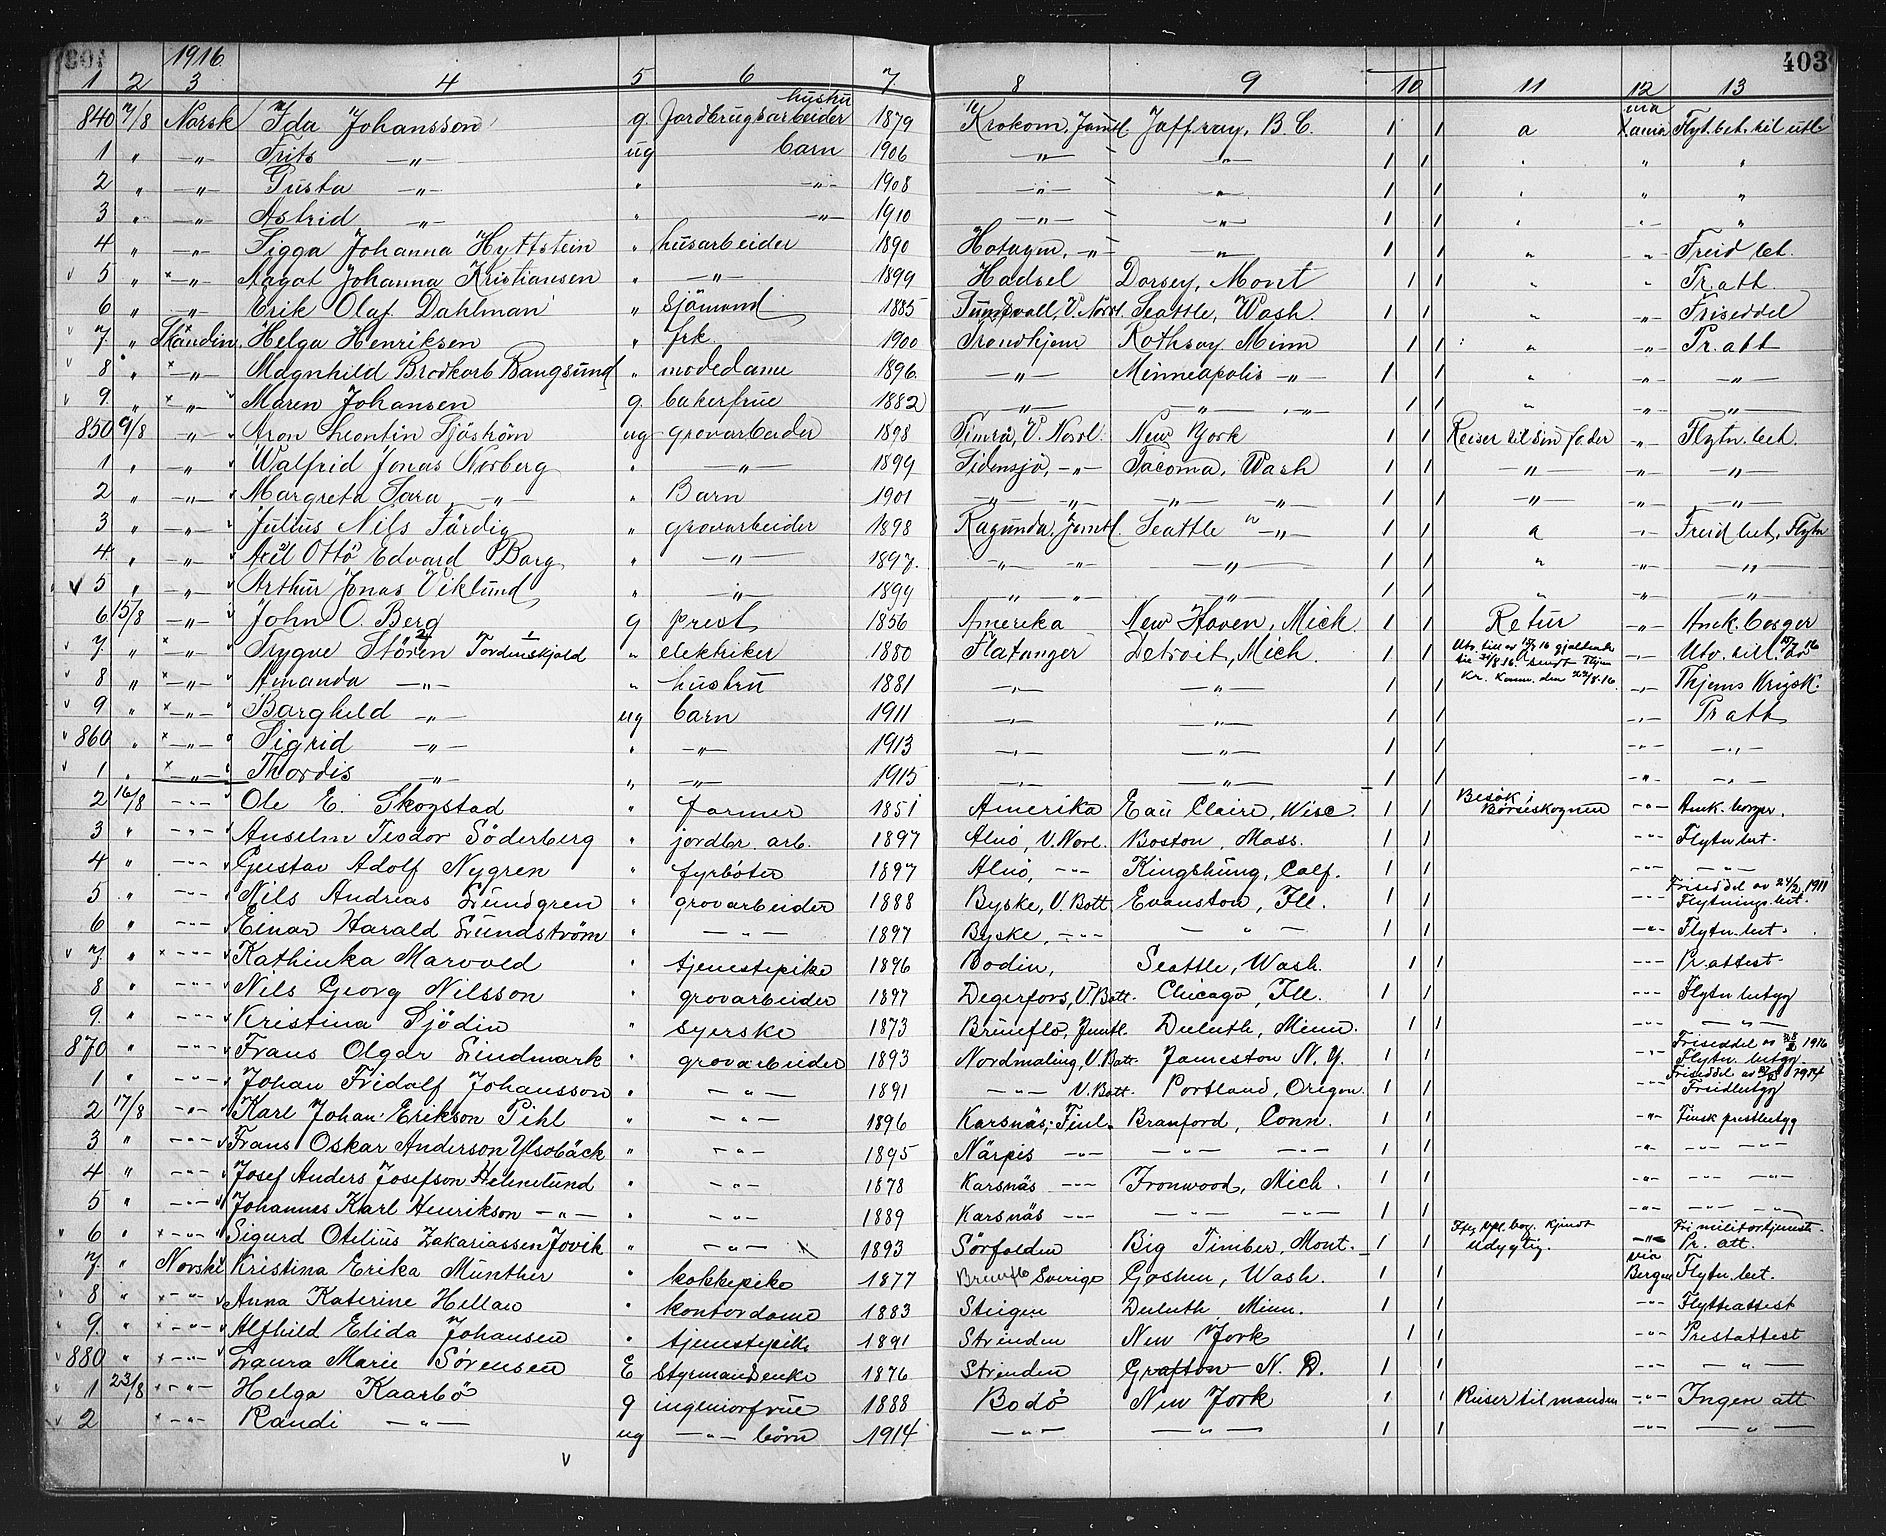 1916
403
1 2 3 4 5 6 7 8 9 10 11 12 13
840 7/8 Norsk Ida Johansson g. Jordbrugsarbeider hustru 1879 Krokom, Jämtl. Jaffray, B. C. 1 1 a via Flyt. bet. til utl.
1 „ —„— Frits —„— ug barn 1906 —„— —„— 1 1 „ „
2 „ —„— Gusta —„— „ —„— 1908 —„— —„— 1 1 „ „
3 „ —„— Astrid —„— „ —„— 1910 —„— —„— 1 1 „ „
4 „ —„— Sigga Johanna Hyttstein „ husarbeider 1890 Hotagen, —„— —„— 1 1 „ „ Freid bet.
v 5 „ x —„— Aagot Johanna Kristiansen „ —„— 1899 Hadsel Dorsey, Mont 1 1 „ „ Pr. att.
6 „ —„— Erik Olaf Dahlman „ Sjömand 1885 Sundsvall, V. Norl. Seattle, Wash 1 1 „ „ Friseddel
v 7 „ Skandin. Helga Henriksen „ frk. 1900 Trondhjem Rothsay Minn 1 1 „ „ Pr. att
v 8 „ x —„— Magnhild Brodkorb Bangsund „ modedame 1896. —„— Minneapolis —„— 1 1 „ „ —„—
v 9 „ x —„— Maren Johansen g bakerfrue 1882 —„— —„— —„— 1 1 „ „ —„—
850 9/8 —„— Aron Leontin Sjöström ug grovarbeider 1898 Timrå, V. Norl. New York 1 1 Reiser til sin fader „ Flytn. bet.
1 „ —„— Walfrid Jonas Norberg „ —„— 1899 Sidensjö, —„— Tacoma, Wash 1 1 —„— „ —„—
2 „ —„— Margreta Sara —„— „ Barn 1901 —„— —„— —„— —„— 1 1 —„— „ —„—
3 „ —„— Julius Nils Färdig „ grovarbeider 1898 Ragunda, Jämtl. Seattle —„— 1 1 a „ Freid bet, Flytn
4 „ —„— Axel Otto Edvard Borg „ —„— 1897. —„— —„— —„— 1 1 „ „ —„—
v 5 „ —„— Arthur Jonas Viklund „ —„— 1899 —„— —„— —„— 1 1 „ „ —„—
6 15/8 —„— John O. Berg g prest 1856 Amerika New Haven, Mich. 1 1 Retur „ Amk. borger
v 7 „ x —„— Trygve Stören Tordenskjold „ elektriker 1880 Flatanger Detroit, Mich. 1 1 Utv. till av 15/7 16 gjældende til 31/8 16. sendt Thjem „ Utv. till. 15/7 16
v 8 „ x —„— Amanda —„— „ hustru 1881 —„— —„— 1 1 Kr. Komm. den 22/8-16 „ Thjems Krigsk.
v 9 „ x —„— Borghild —„— ug barn 1911 —„— —„— 1 1 „ Pr att
v 860 „ x —„— Sigrid —„— „ —„— 1913 —„— —„— 1 1 „ —„—
v 1 „ x —„— Thordis —„— „ —„— 1915 —„— —„— 1 1 „ —„—
2 16/8 —„— Ole E. Skogstad „ farmer 1851 Amerika Eau Claire, Wisc. 1 1 Besök i Börseskognen „ Amk. borger.
3 „ —„— Anselm Teodor Söderberg „ jordbr. arb. 1897 Alnö, V. Norl. Boston, Mass. 1 1 „ Flytn bet.
4 „ —„— Gustav Adolf Nygren „ fyrböter 1897 Alnö, —„— Kingsburg, Calf. 1 1 „ —„—
5 „ —„— Nils Andreas Lundgren „ grovarbeider 1888 Byske, V. Bott. Evanston, Ill. 1 1 „ Friseddel av 24/2 1911 Flytnings bet.
6 „ —„— Einar Harald Lundström „ —„— 1897 Byske, —„— —„— 1 1 „ Flytn bet.
v 7 „ x —„— Kathinka Marvold „ tjenestepike 1896 Bodin, Seattle, Wash. 1 1 „ Pr. attest.
8 „ —„— Nils Georg Nilsson „ grovarbeider 1897 Degerfors, V. Bott. Chicago, Ill. 1 1 „ Flytn betyg
9 „ —„— Kristina Sjödin „ syerske 1873 Brunflo, Jemtl. Duluth, Minn. 1 1 „ —„—
870 „ —„— Frans Olgar Lindmark „ grovarbeider 1893 Nordmaling, V. Bott. Jameston N. Y. 1 1 „ Friseddel av 1916 Flytn. betyg
1 „ —„— Johan Fridolf Johansson „ —„— 1891 —„— V. Bott. Portland, Oregon. 1 1 „ Friseddel av 1914 Freidbetyg
2 17/8 —„— Karl Johan Erikson Pihl „ —„— 1896 Karsnäs, Finl. Branford, Conn. 1 1 „ Finsk prestbetyg
3 „ —„— Frans Oskar Anderson Ylsobäck „ —„— 1895 Närpis —„— —„— —„— 1 1 „ —„— —„—
4 „ —„— Josef Anders Josefson Helmelund „ —„— 1878 Karsnäs —„— Ironwood, Mich. 1 1 „ —„— —„—
5 „ —„— Johannes Karl Henrikson —„— „ —„— 1889 Karsnäs —„— —„— —„— 1 1 „ —„— —„—
v 6 „ x —„— Sigurd Otelius Zakariassen Jovik „ —„— 1893 Sörfolden Big Timber, Mont. 1 1 kjendt udygtig. „ Fri militærtjenest. Pr. att.
7 „ Norske Kristina Erika Münther „ kokkepike 1877 Brunflo Sverige Goshen, Wash. 1 1 via Bergen Flytn. bet.
v 8 „ x —„— Anna Katerine Hellan „ kontordame 1883 Steigen Duluth Minn. 1 1 „ Flytteattest
v 9 „ x —„— Alfhild Elida Johansen „ tjenestepike 1891 Strinden New York 1 1 „ Prestattest
v 880 „ x —„— Laura Marie Sørensen E Styrmandenke 1876 Strinden Grafton N. D. 1 1 „ —„—
v 1 23/8 x —„— Helga Kaarbö g ingeniørfrue 1888 Bodö New York 1 1 Reiser til manden „ Ingen att
v 2 x —„— Randi —„— ug —„— börn 1914 —„— —„— 1 1 „ —„—
v